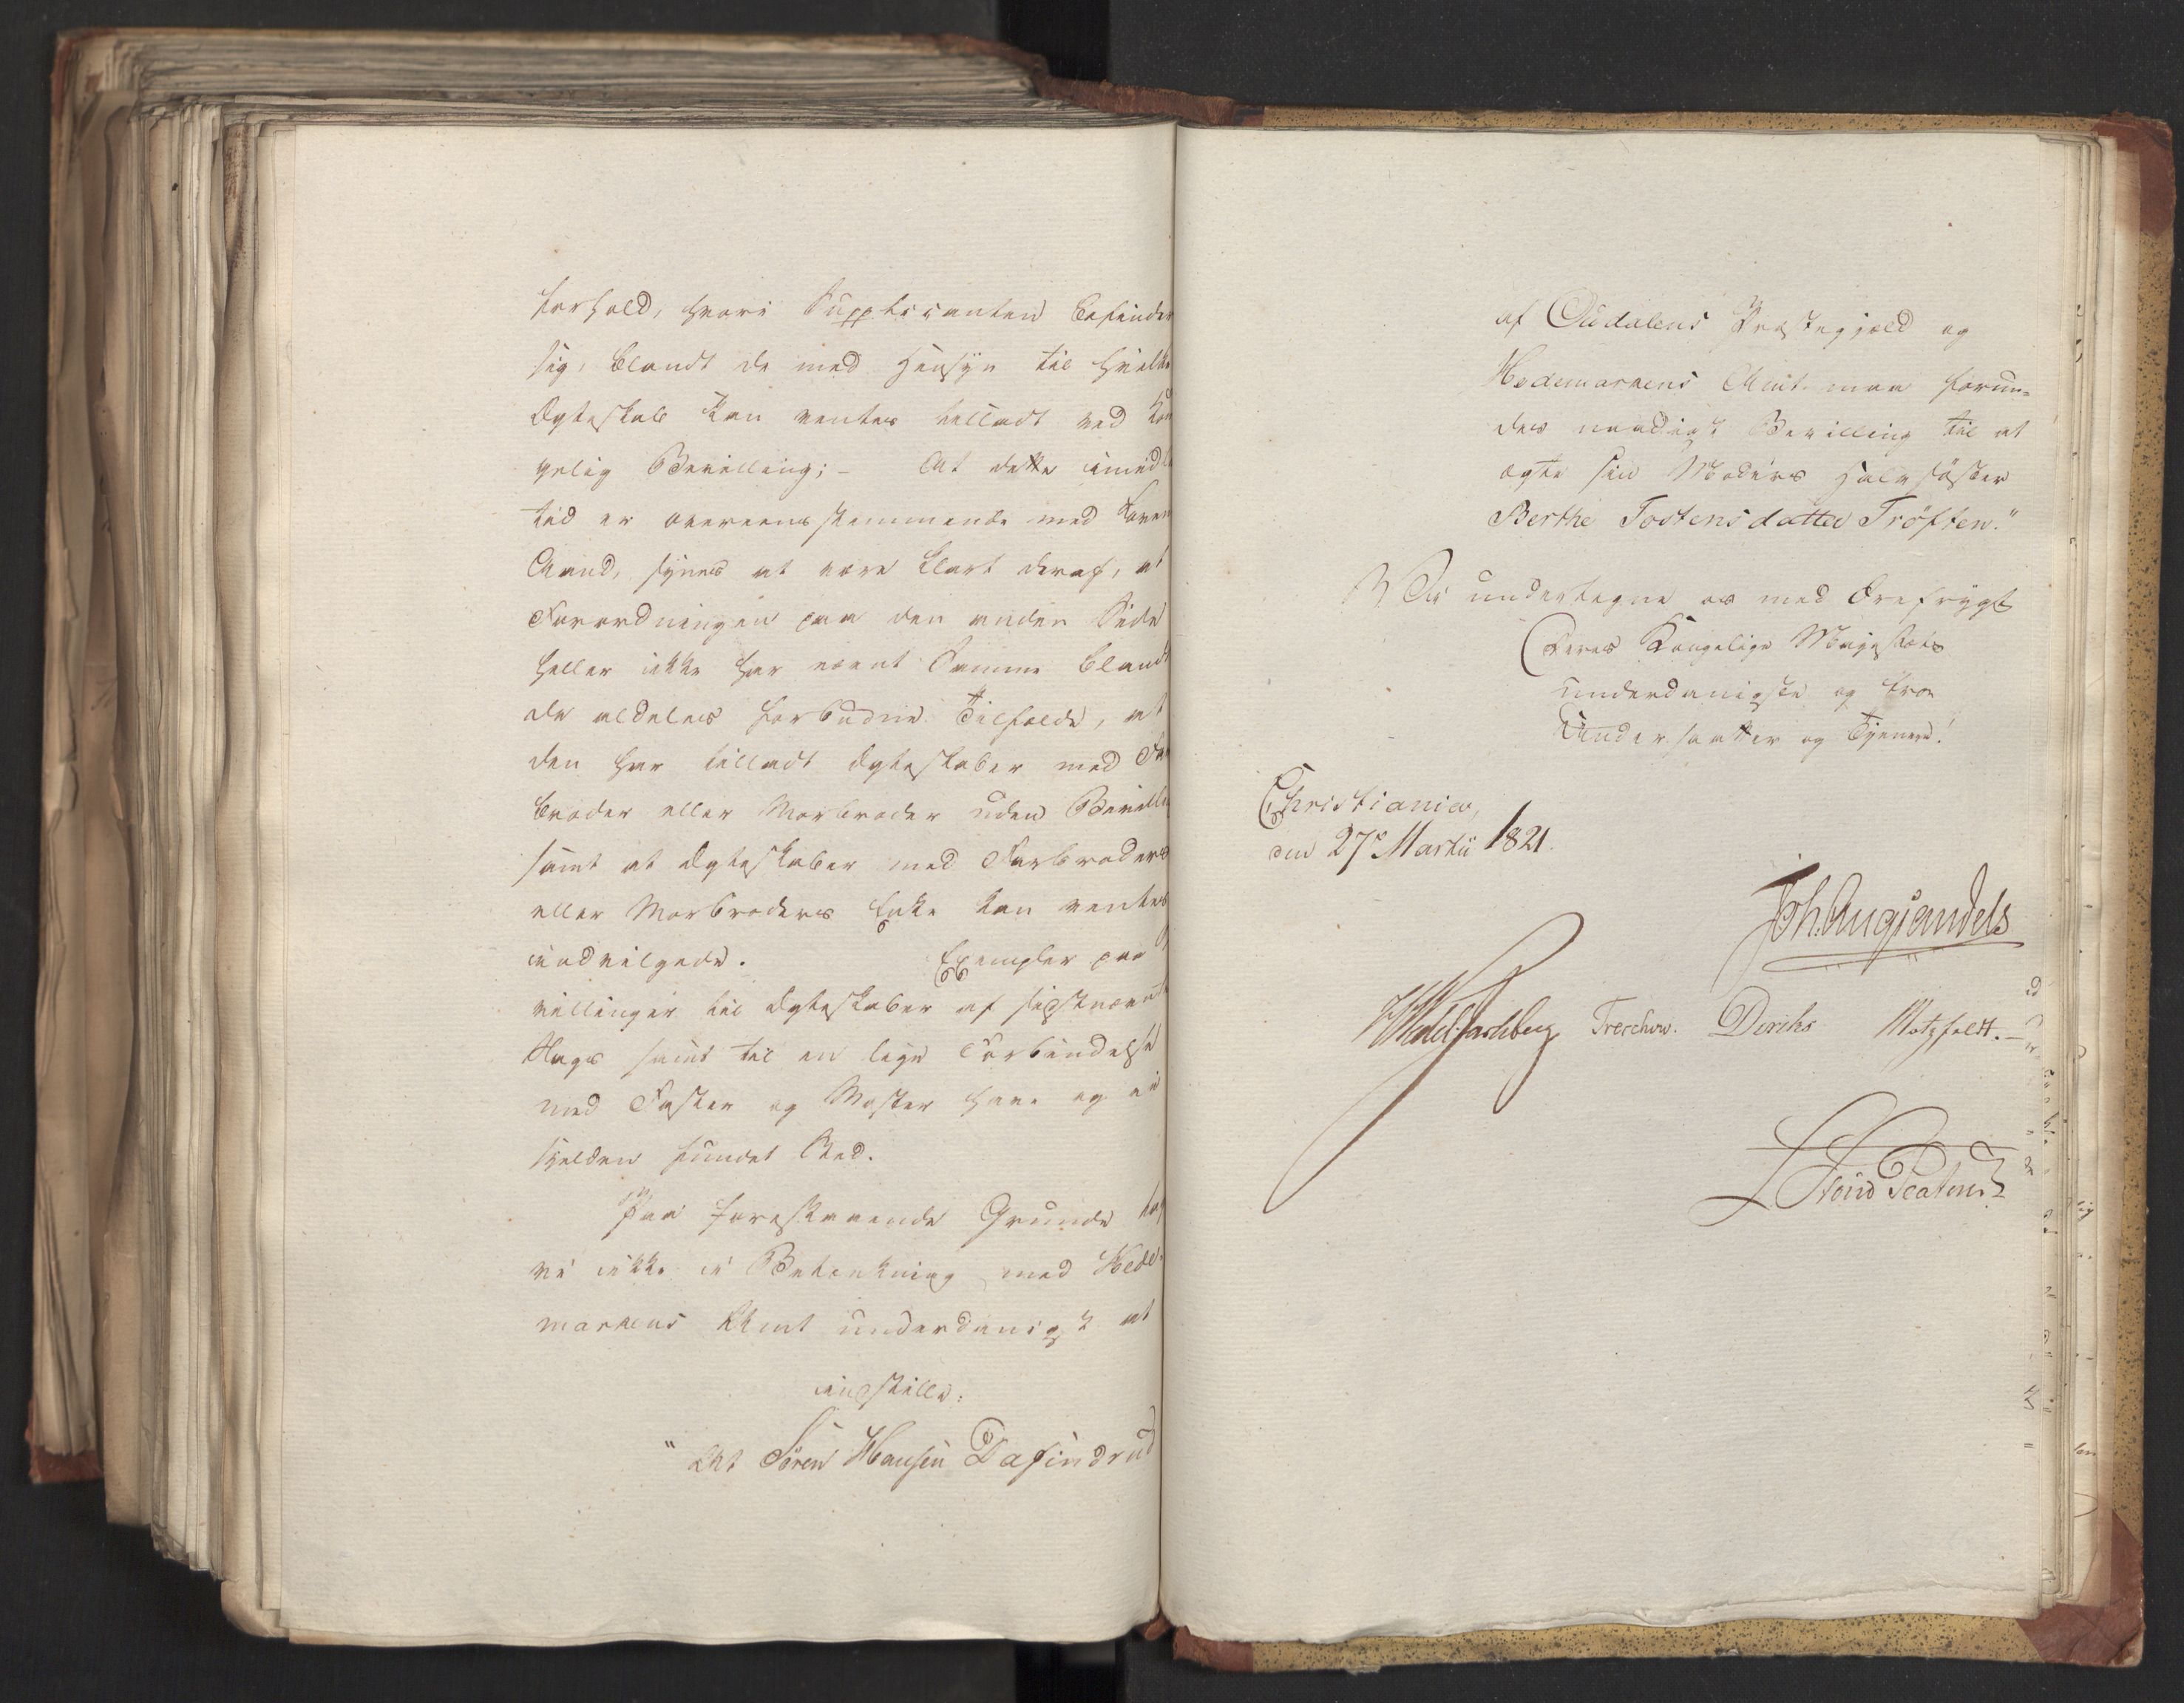 forhold, hvori Supplicanten befinder
sig, blandt de med Hensyn til hvilke
Ægteskab kan ventes tilladt ved Kon
gelig Bevilling; – At dette imidle
tid er overeensstemmende med Lovens
Aand, synes at være klart deraf, at
Forordningen paa den anden Side
heller ikke har nævnt Samme blandt
de aldeles forbudne Tilfælde, at
den har tilladt Ægteskaber med Far
broder eller Morbroder uden Bevilling
samt at Ægteskaber med Farbroders
eller Morbroders Enke kan ventes
indvilgede. Exempler paa
villinger til Ægteskaber af sidstnævnte
Slags samt til en lige Forbindelse
med Faster og Moster have og ei
sjelden fundet Sted.
Paa foreskrevende Grunde tag
vi ikke i Betænkning med Hede-
markens Amt underdanigst at
indstille:
" At Sören Hansen Dafindrud
af Oudalens Præstegjæld og
Hedemarkens Amt maa forun-
des naadigst Bevilling til at
ægte sin Moders Halvsöster
Berthe Tostensdatter Tröften."
Vi undertegne os med Ærefrygt
Deres Kongelige Majestæts
underdanigste og troe
Undersaatter og Tjenere!
Christiania,
den 27de Martii 1821.
Joh. Aug. Sandels
HWedel Jarlsberg Treschow. Diriks Motzfeldt. –